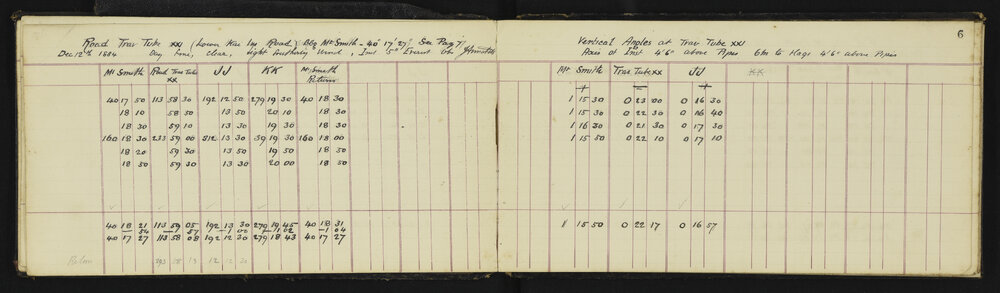 Road Trav Tube XXI (Lower Har by Road) Bbg Mt Smith - 40° 17' 27". See Page 7.
Dec 12th 1884 Day fine, clear, light Southerly Wind, Inst 5" Obs
Mt Smith Road Trav Tube XX JJ KK Mt Smith Return
40 17 50 113 58 30 192 12 50 279 19 30 40 18 30
18 10 58 50 13 50 20 10 18 30
18 30 59 10 13 30 19 30 18 30
160 18 30 233 59 00 312 13 30 39 19 30 160 18 00
18 20 59 30 13 50 19 50 18 50
18 50 59 30 13 30 20 00 18 50
40 18 21 113 59 05 192 13 30 279 19 45 40 18 31
54 57 -1 00 -1 02 -1 04
40 17 27 113 58 08 192 12 30 279 18 43 40 17 27
293 58 13 12 12 30
6
Vertical Angles at Trav Tube XXI
Axis of Inst 4'6" above Pipes Obs to Flags 4'6" above Pipes
Mt Smith Trav Tube XX JJ KK
+ - +
1 15 30 0 23 00 0 16 30
1 15 30 0 22 30 0 16 40
1 16 30 0 21 30 0 17 30
1 15 50 0 22 10 0 17 10
1 15 50 0 22 17 0 16 57